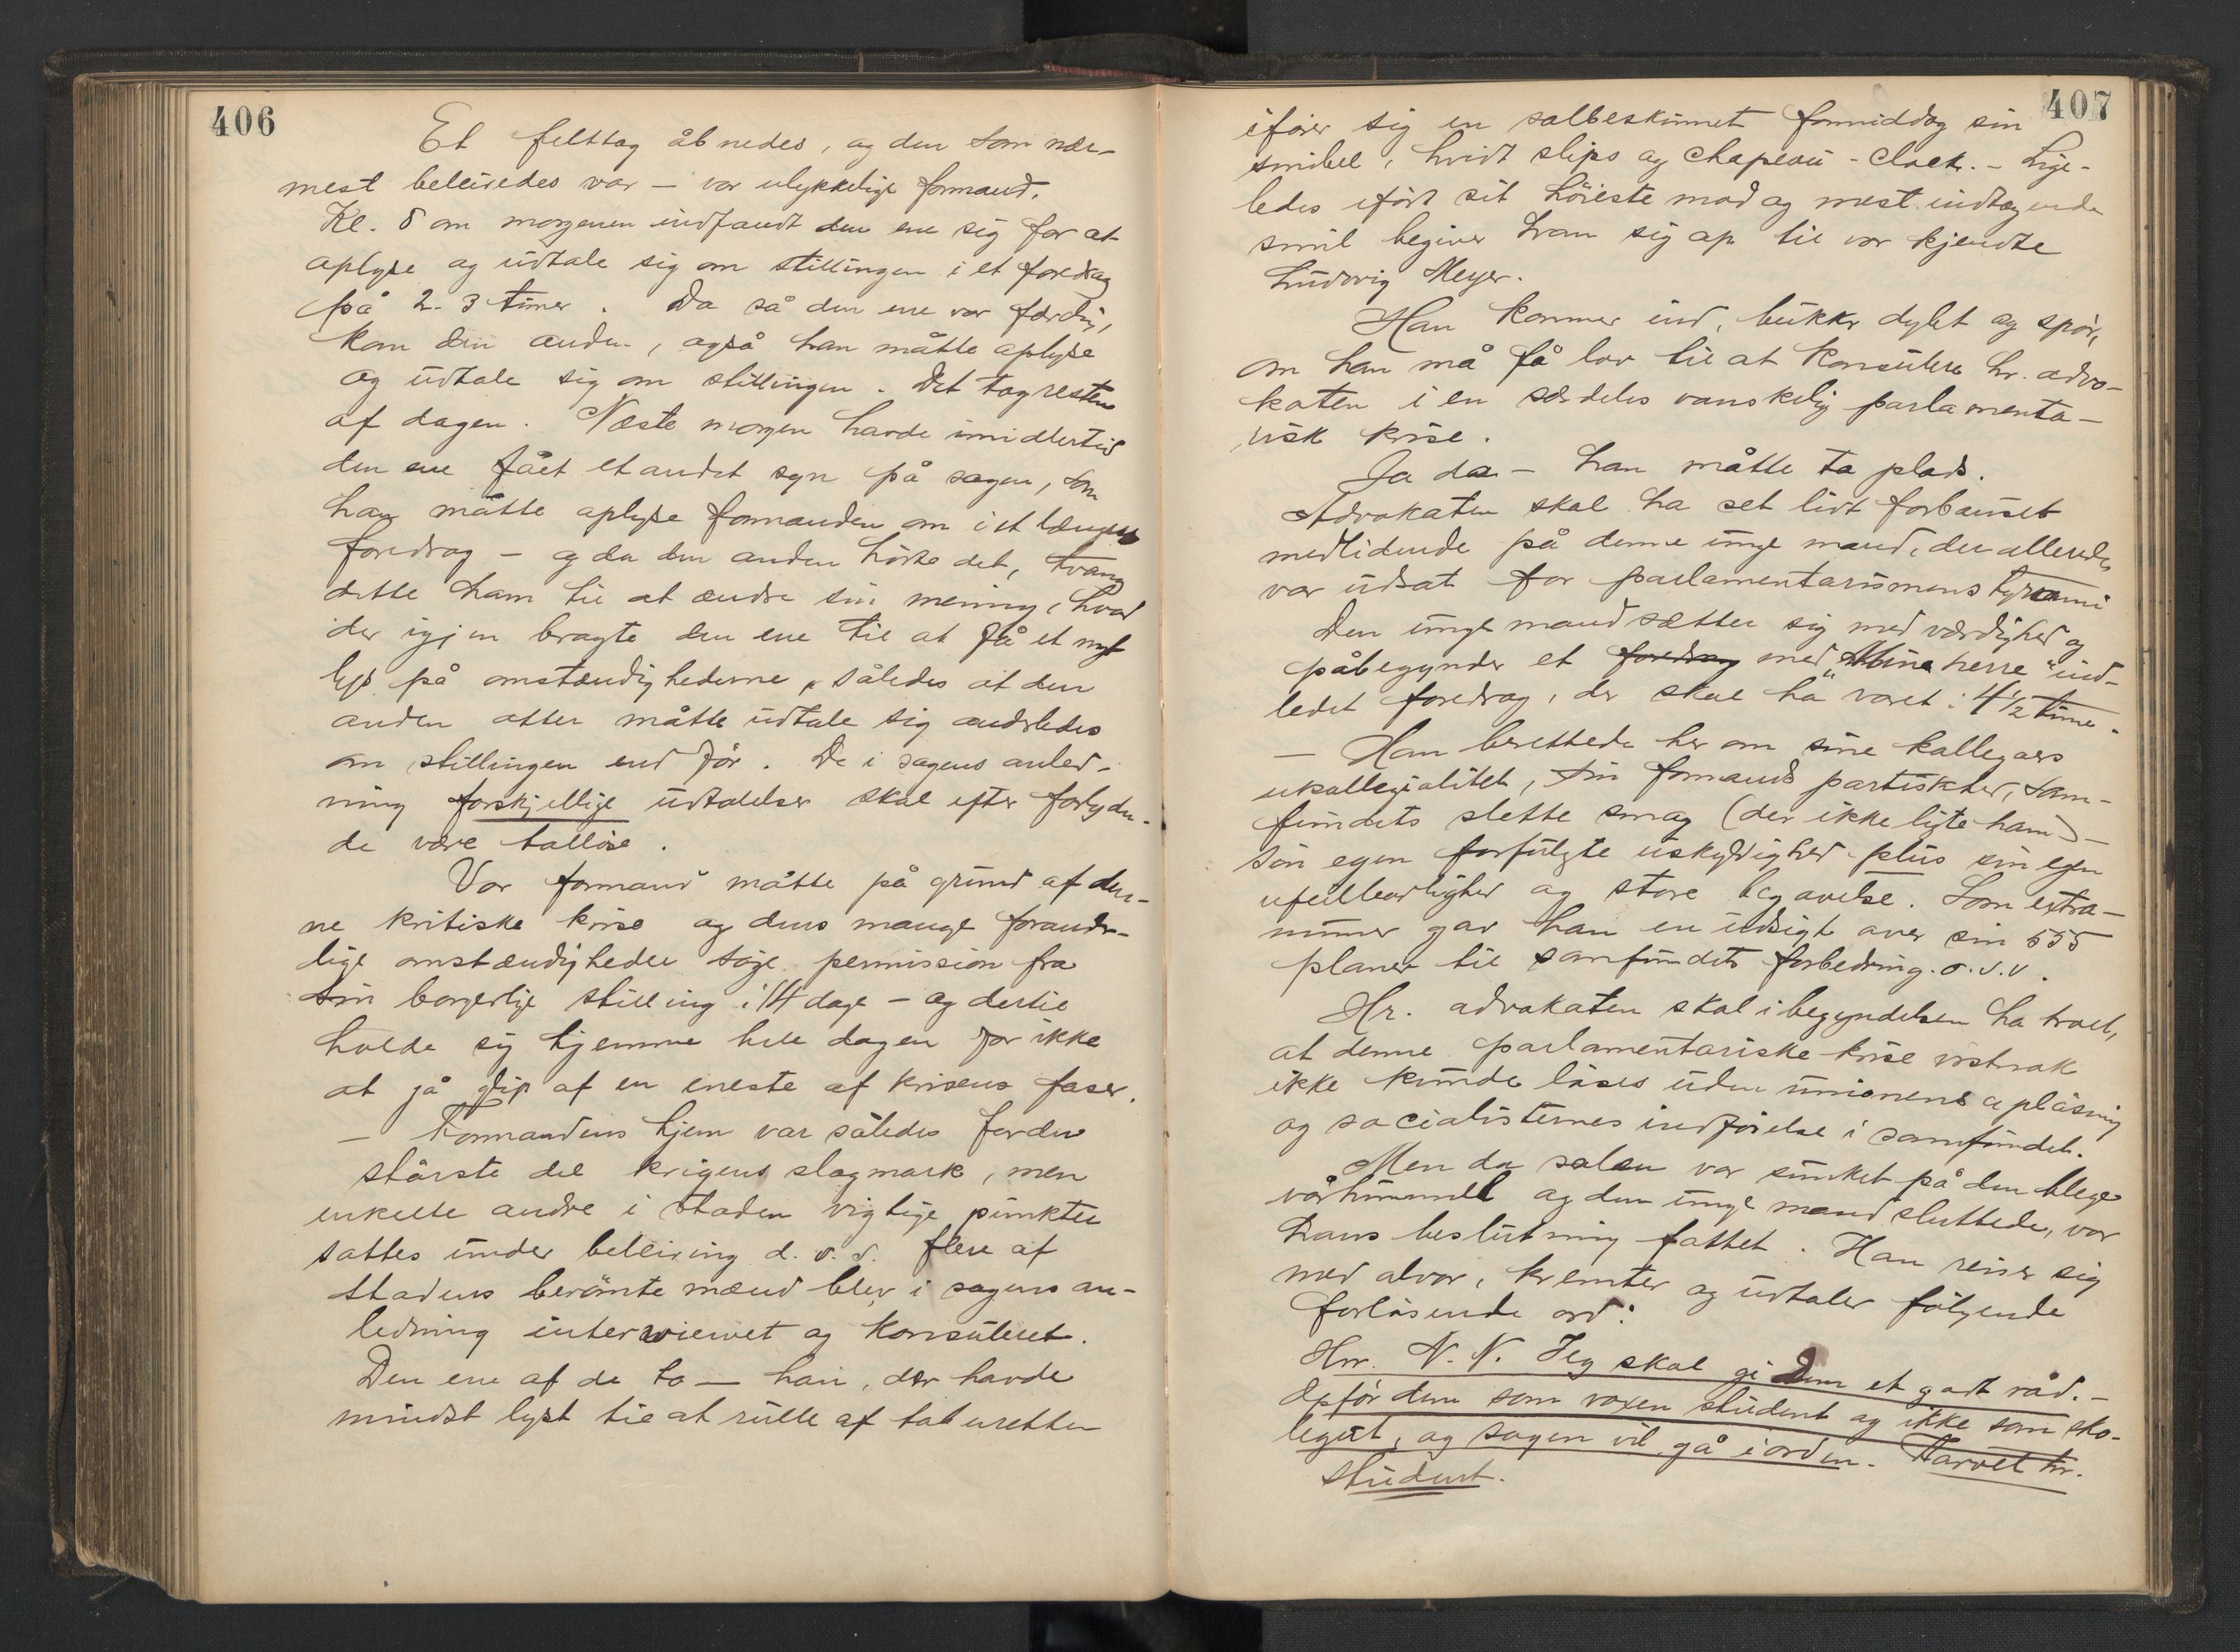 406
Et felttog åbnedes, og den som nær-
mest beleiredes var — vor ulykkelige formand.
Kl. 8 om morgenen indfandt den ene sig for at
oplyse og udtale sig om stillingen i et foredrag
på 2-3 timer. Da så den ene var færdig,
kom den anden, også han måtte oplyse
og udtale sig om stillingen. Det tog resten
af dagen. Næste morgen havde imidlertid
den ene fået et andet syn på sagen, som
han måtte oplyse formanden om i et længere
foredrag — og da den anden hörte det, tvang
dette ham til at ændre sin mening, hvad
der igjen bragte den ene til at få et nyt
lys på omstændighederne, således at den
anden atter måtte udtale sig anderledes
om stillingen end för. De i sagens anled-
ning forskjellige udtalelser skal efter forlyden-
de være talløse.
Vor formand måtte på grund af den-
ne kritiske krise og dens mange forander-
lige omstændigheder söge permission fra
sin borgerlige stilling i 14 dage — og dertil
holde sig hjemme hele dagen for ikke
at gå glip af en eneste af krisens faser.
— Formandens hjem var således for den
störste del krigens slagmark, men
enkelte andre i staden vigtige punkter
sattes under beleiring d. v. s. flere af
stadens berömte mænd blev i sagens an-
ledning interwiewet og konsuleret.
Den ene af de to — han, der havde
mindst lyst til at rulle af taburetten
407
ifører sig en solbeskinnet formiddag sin
snibel, hvidt slips og chapeau-clack. — Lige-
ledes ifört sit höieste mod og mest indtagende
smil begiver han sig op til vor kjendte
Ludvig Meyer.
Han kommer ind, bukker dybt og spör,
om han må få lov til at konsulere hr. advo-
katen i en særdeles vanskelig parlamenta-
risk krise.
Ja da — han måtte ta plads.
Advokaten skal ha set lidt forbauset
medlidende på denne unge mand, der allerede
var udsat for parlamentarismens tyranni
Den unge mand sætter sig med værdighed og
påbegynder et foredrag med "Mine herre" ind-
ledet foredrag, der skal ha varet i 4 1/2 time.
— Han berettede her om sine kollegaers
ukollegialitet, sin formands partiskhed, sam-
fundets slette smag (der ikke ligte ham) —
sin egen forfulgte uskyldighed plus sin egen
ufeilbarlighed og store begavelse. Som extra-
numer gav han en udsigt over sin 555
planer til samfundets forbedring. o. s. v.
Hr. advokaten skal i begyndelsen ha troet,
at denne parlamentariske krise vistnok
ikke kunde löses uden unionens oplösning
og socialisternes indförelse i samfundet.
Men da solen var sunket på den blege
vårhimmel og den unge mand sluttede, var
hans beslutning fattet. Han reiser sig
med alvor, kremter og udtaler fölgende
forlösende ord:
Hrr. N. N. Jeg skal gi Dem et godt råd. —
Opför dem som voxen student og ikke som sko-
legut, og sagen vil gå i orden. Farvel hr.
student.